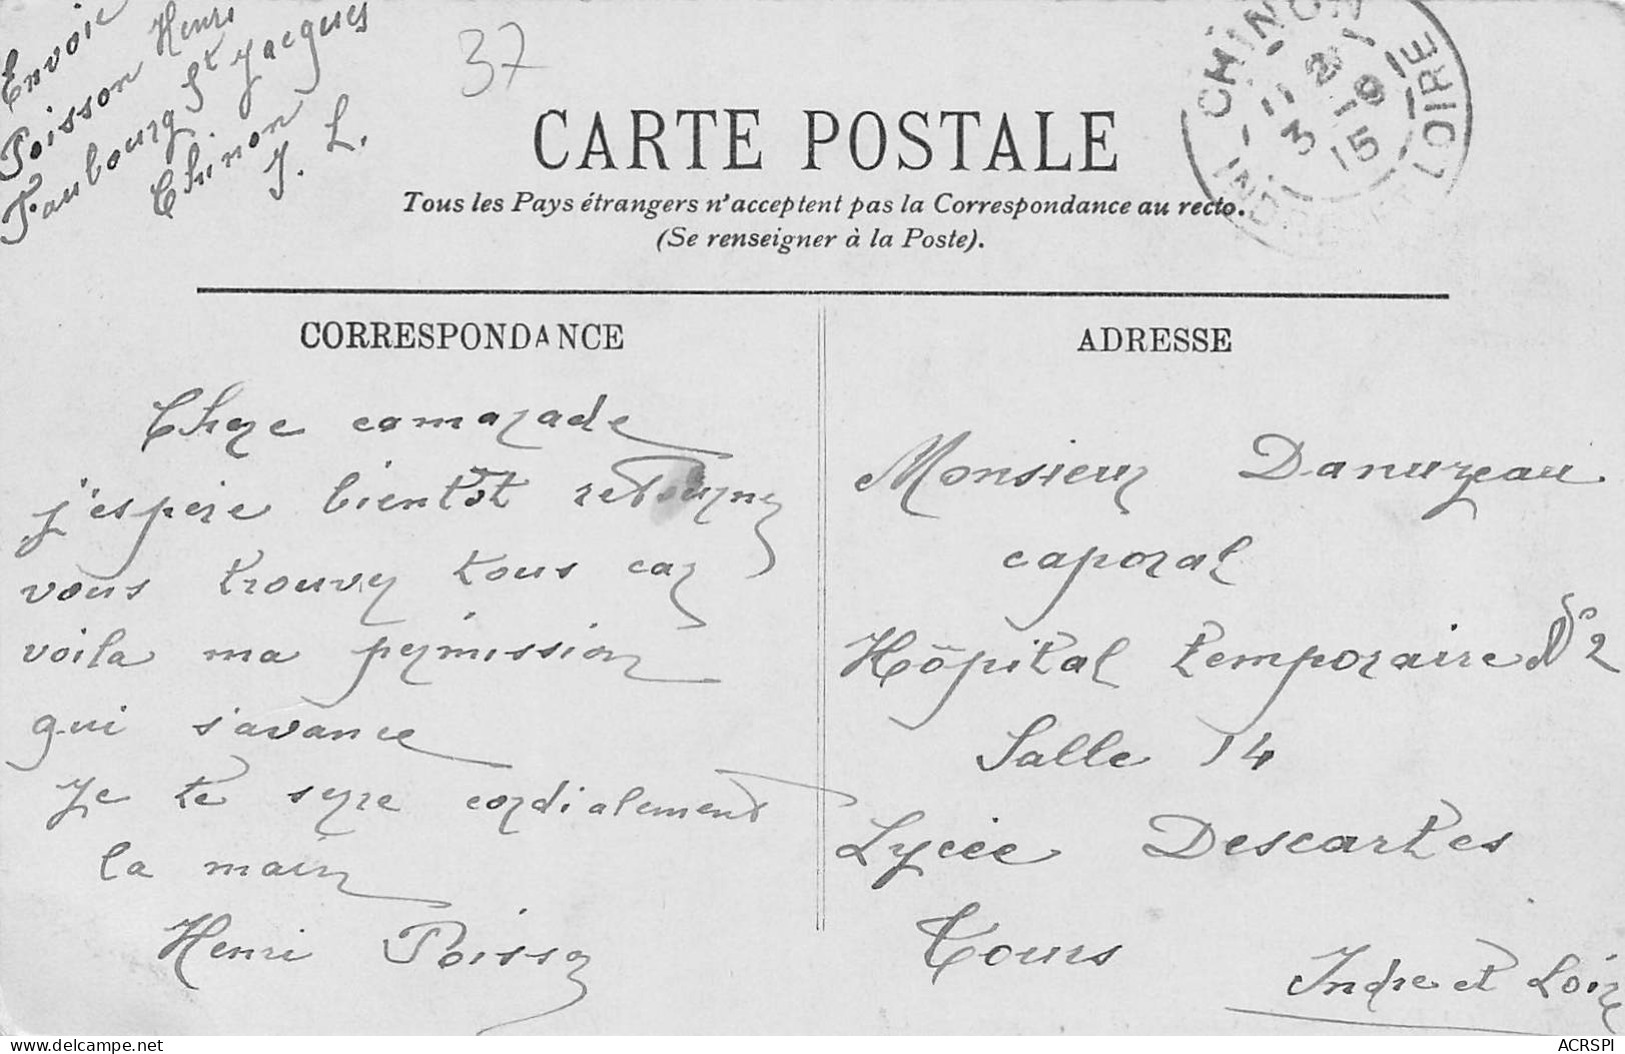 Envoie
Poisson Henri
Faubourg St Jacques
Chinon
I. L.
37
CARTE POSTALE
Tous les Pays étrangers n'acceptent pas la Correspondance au recto.
(Se renseigner à la Poste).
CHINON
3 - 9
15
INDRE ET LOIRE
CORRESPONDANCE
Chere camarade
j'espère bientôt retourné
vous trouver tous car
voila ma permission
qui s'avance
Je te sere cordialement
la main
Henri Poisson
ADRESSE
Monsieur Danuzeau
caporal
Hôpital temporaire N° 2
Salle 14
Lycée Descartes
Tours
Indre et Loire
ACRSPI